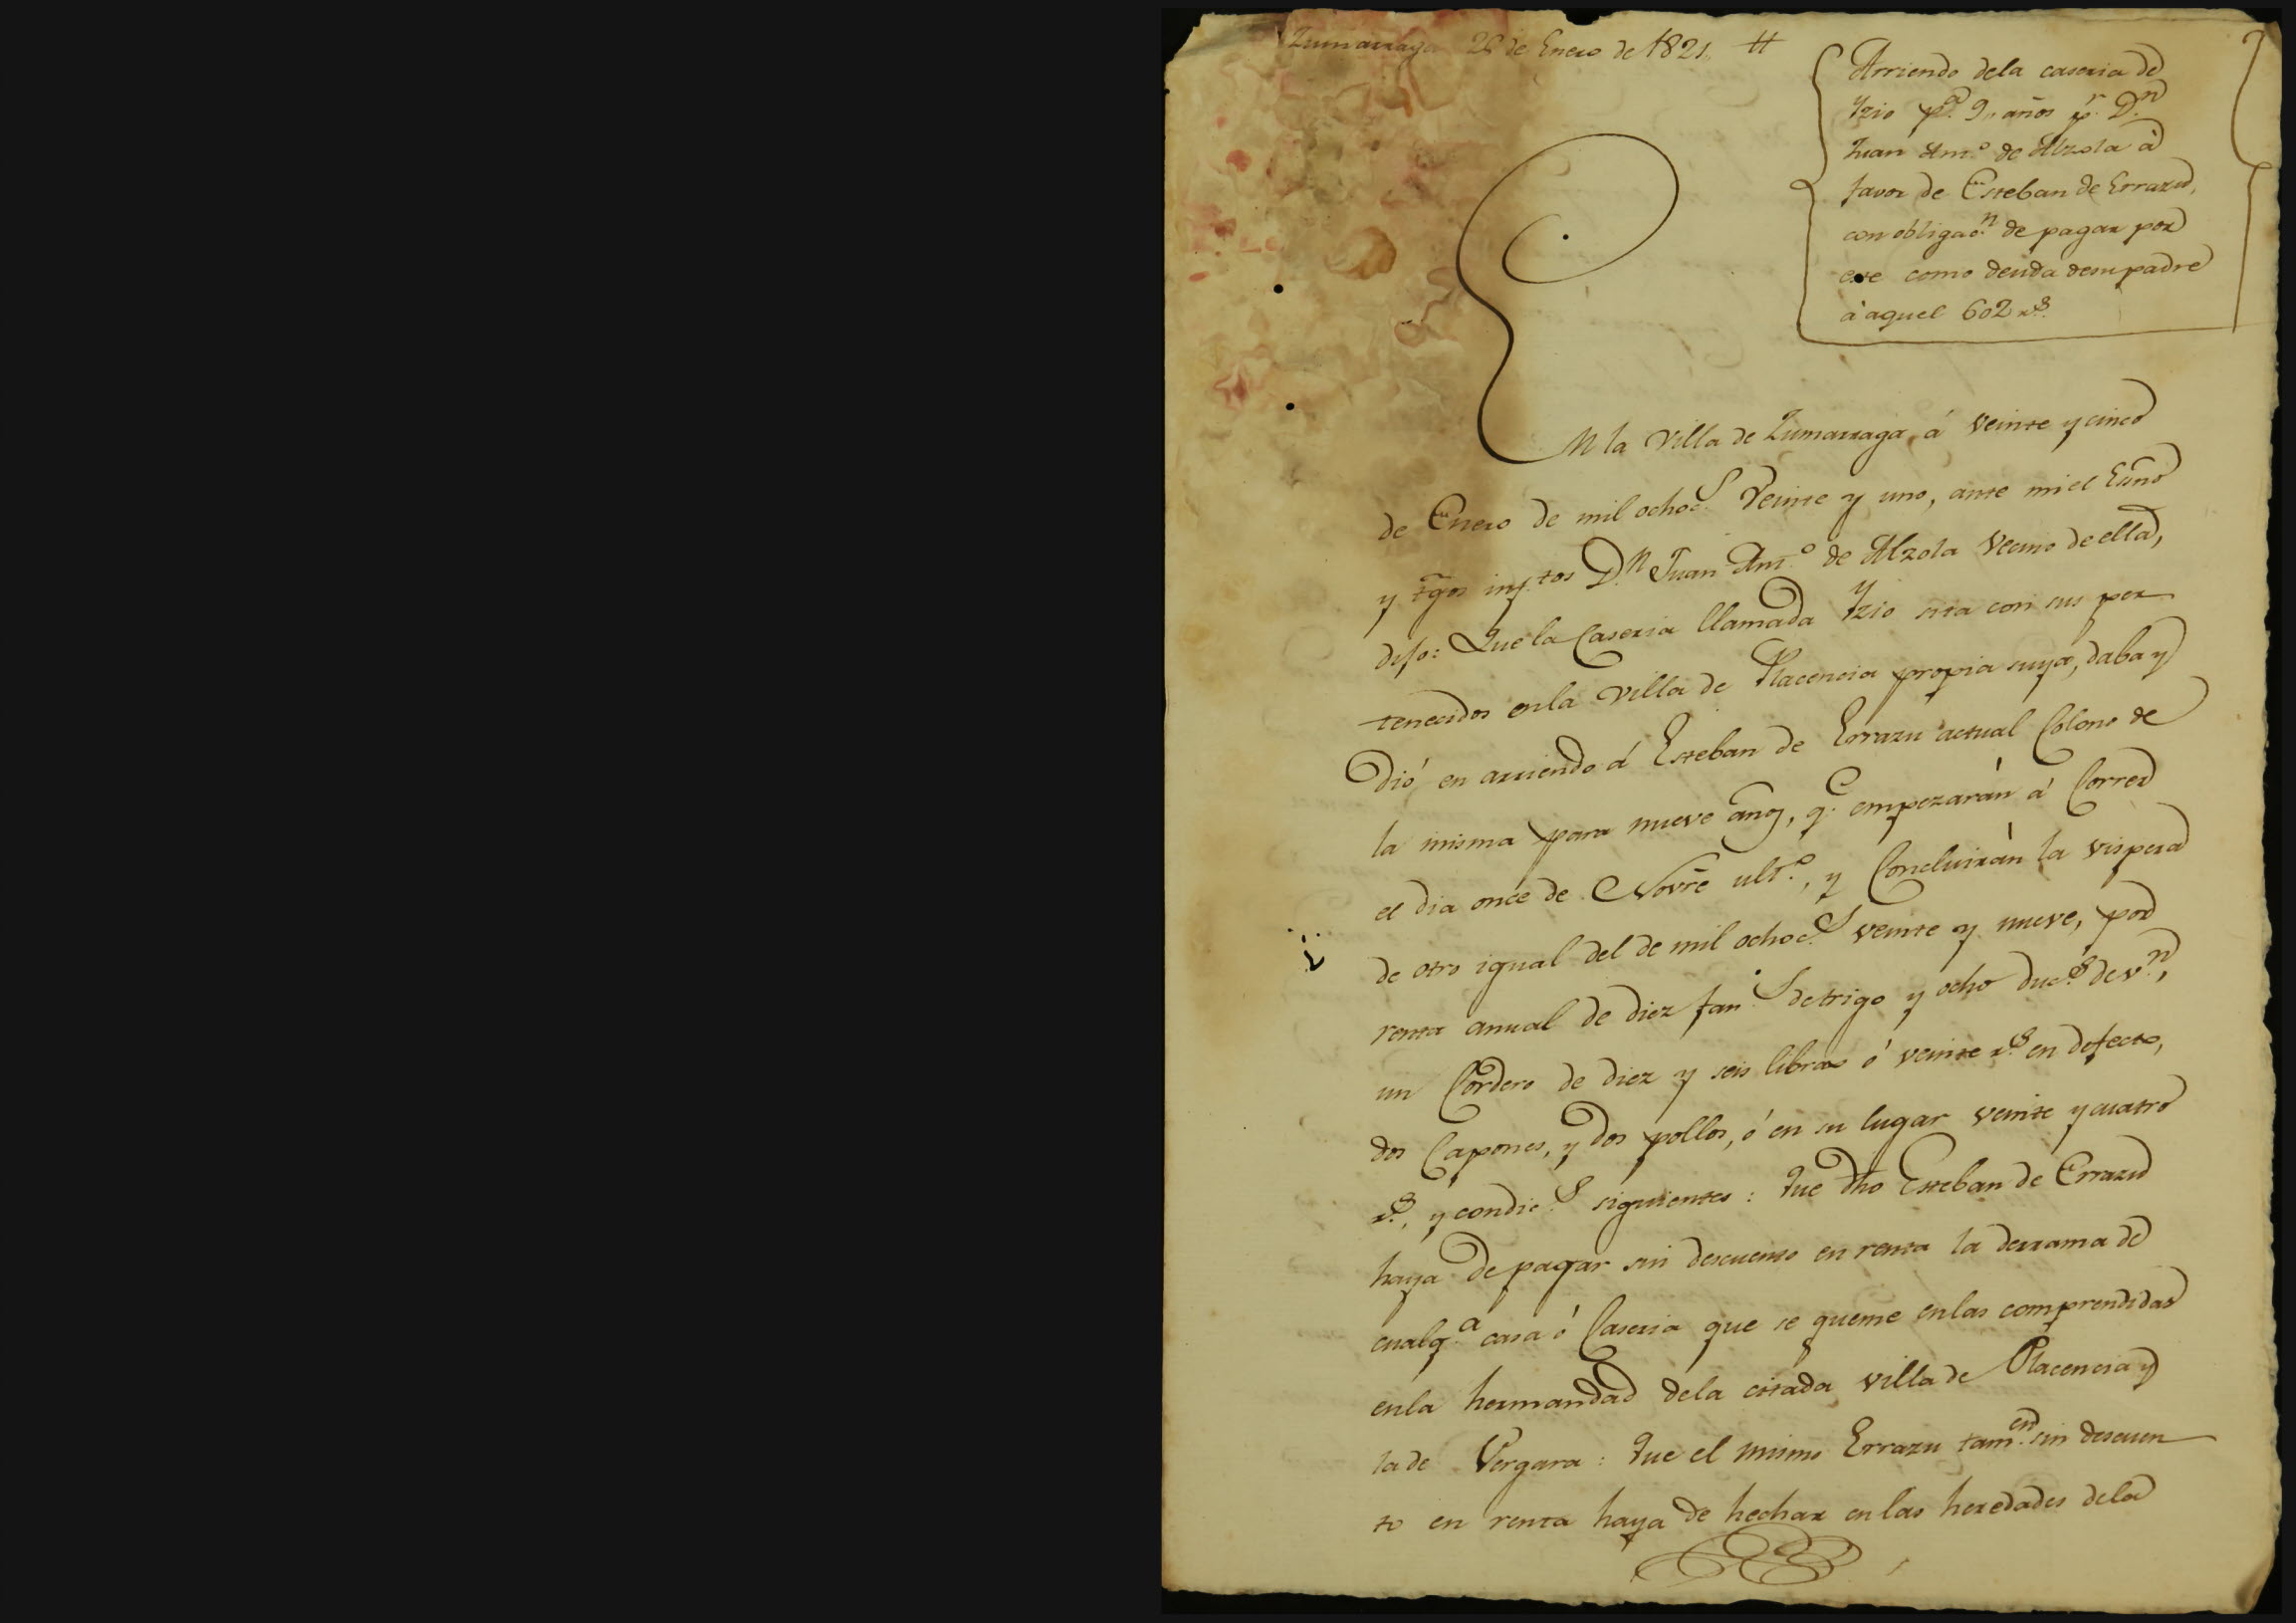 Zumarraga 26 de Enero de 1821. #
Arriendo dela caseria de
Yzio p.ª 9,, años p.r D.n
Juan Ant.º de Alzola á
favor de Esteban de Errazu,
con obligac.n de pagar por
este como deuda desu padre
á aquel 602 r.s
En la Villa de Zumarraga á veinte y cinco
de Enero de mil ochoc.s Veinte y uno, ante mi el Esnō
y tg̃os inf.tos D.n Juan Ant.º de Alzola Vecino de ella,
dijo: Que la Caseria llamada Yzio sita con sus per
tenecidos enla Villa de Placencia propia suya, daba y
Dió en arriendo á Esteban de Errazu actual Colono de
la misma para nueve años, q.e empezarán á Correr
el dia once de Novrē ult.º, y Concluirán la vispera
de otro igual del de mil ochoc.s veinte y nueve, por
renta anual de diez fan.s de trigo y ocho duc.s de v.n,
un Cordero de diez y seis libras ó veinte r.s en defecto,
dos Capones, y dos pollos, ó en su lugar veinte y cuatro
r.s, y condic.s siguientes: Que dho Esteban de Errazu
haya de pagar sin descuento en renta la derrama de
cualq.ª casa ó Caseria que se queme enlas comprendidas
enla hermandad dela citada villa de Placencia y
la de Vergara: Que el mismo Errazu tam.en sin descuen
to en renta haya de hechar en las heredades dela